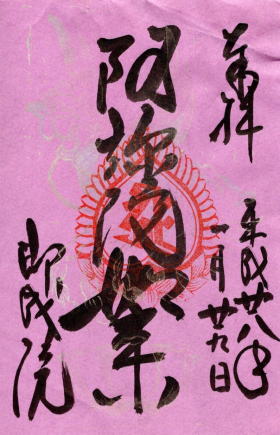 奉拝
平成廿八年
一月廿九日
阿弥陀
即成院